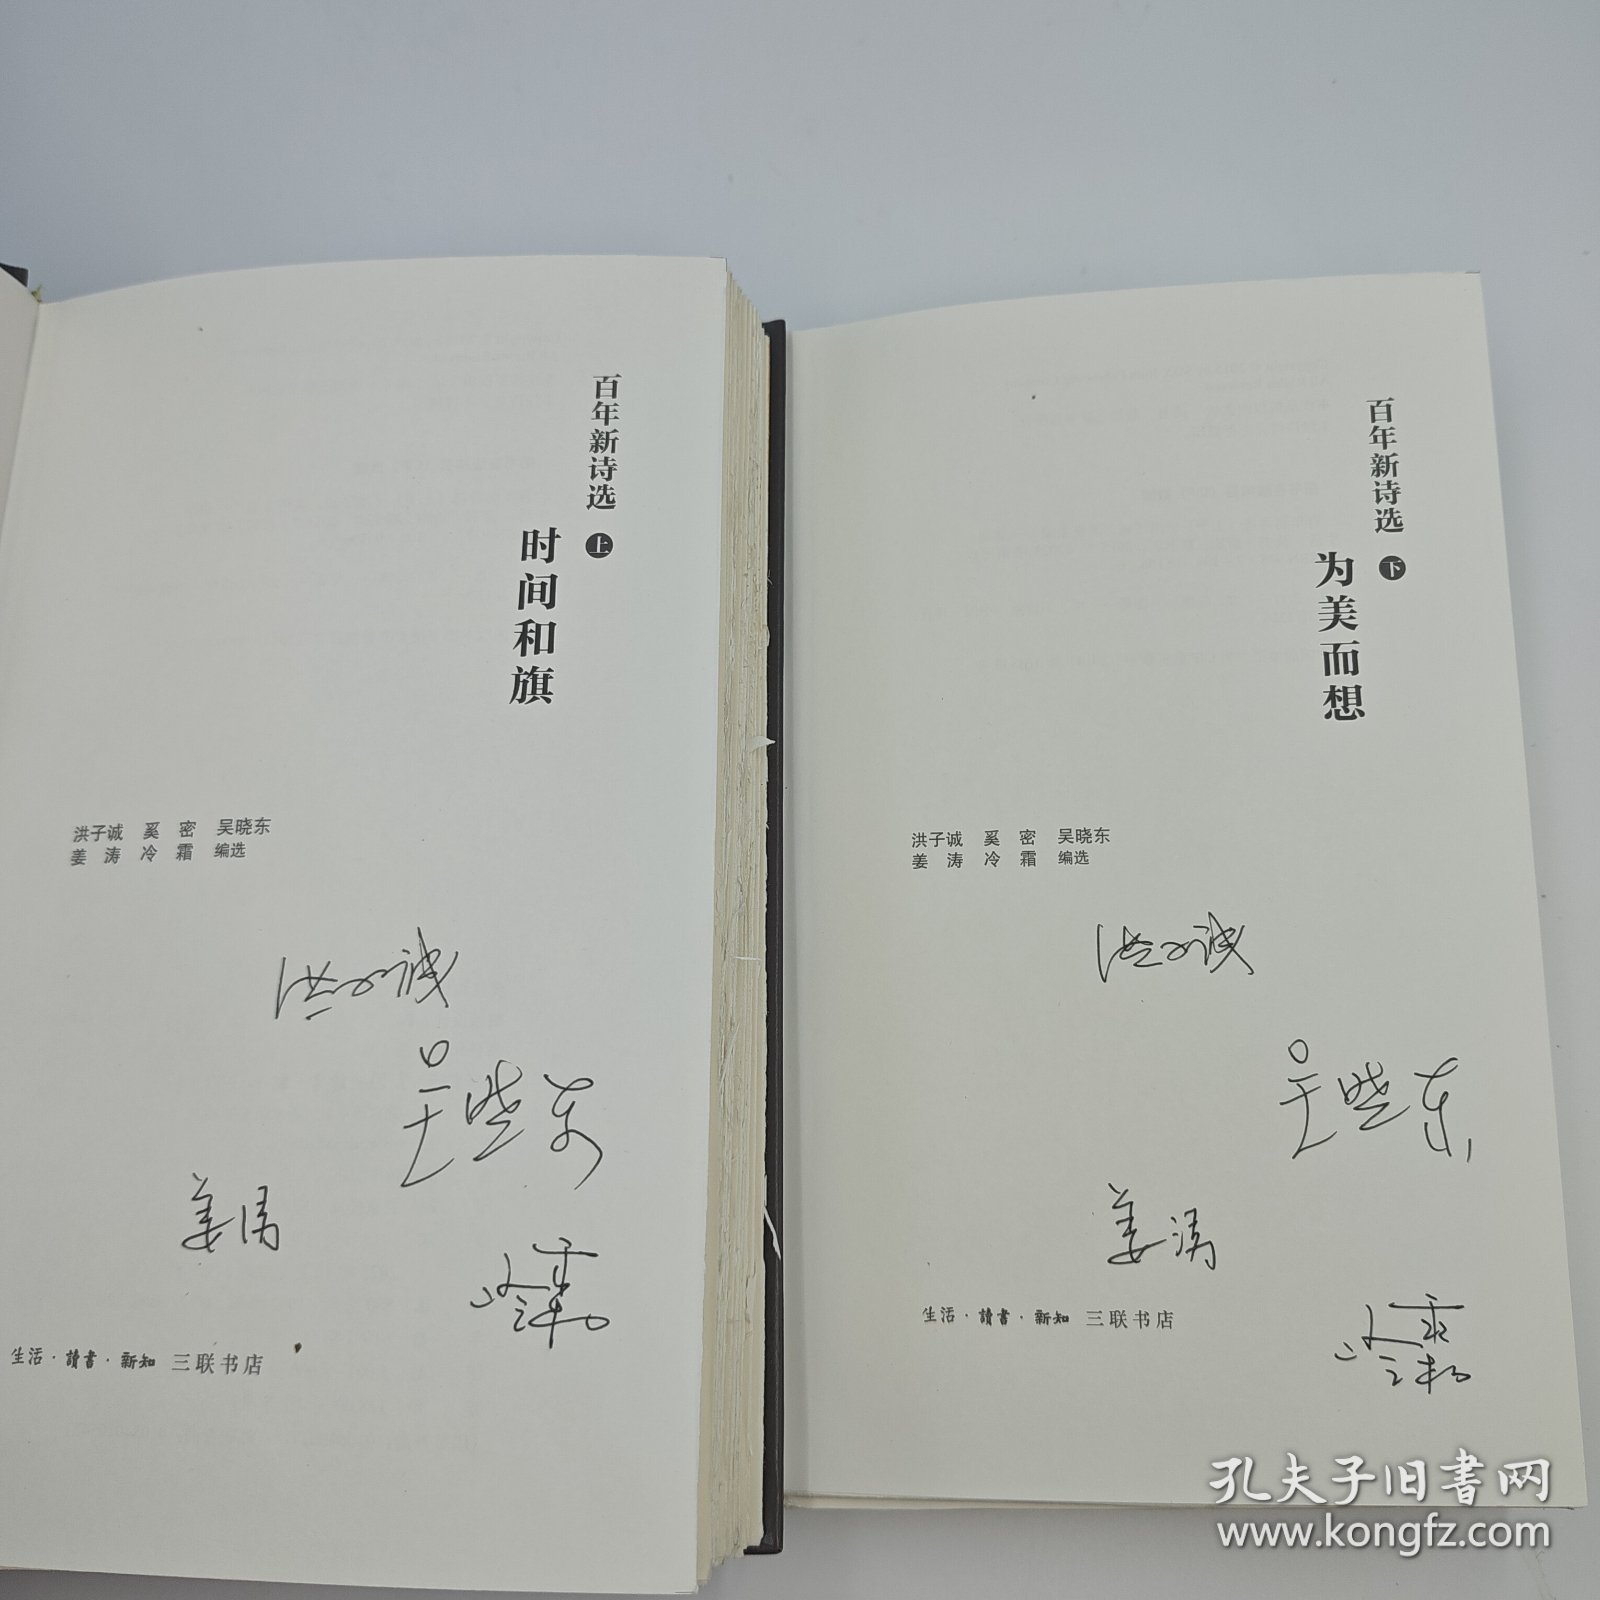 百年新诗选 上
时间和旗
洪子诚 奚 密 吴晓东
姜 涛 冷 霜 编选
洪子诚
吴晓东
姜涛
冷霜
生活·讀書·新知 三联书店
百年新诗选 下
为美而想
洪子诚 奚 密 吴晓东
姜 涛 冷 霜 编选
洪子诚
吴晓东
姜涛
冷霜
生活·讀書·新知 三联书店
孔夫子旧书网
www.kongfz.com